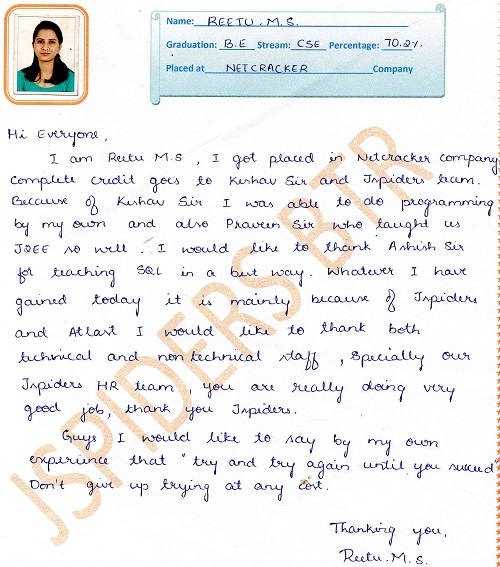 Name: REETU.M.S.
Graduation: B.E Stream: CSE Percentage: 70.2%
Placed at NETCRACKER Company
Hi Everyone,
I am Reetu M.S, I got placed in Netcracker company,
Complete credit goes to Keshav Sir and Jspiders team.
Because of Keshav Sir I was able to do programming
by my own and also Praveen Sir who taught us
J2EE so well. I would like to thank Ashish Sir
for teaching SQL in a best way. Whatever I have
gained today it is mainly because of Jspiders
and Atlast I would like to thank both
technical and non technical staff, Specially our
Jspiders HR team, you are really doing very
good job, thank you Jspiders.
Guys I would like to say by my own
experience that "try and try again until you succeed"
Don't give up trying at any cost.
Thanking you,
Reetu.M.S.
JSPIDERS BTR